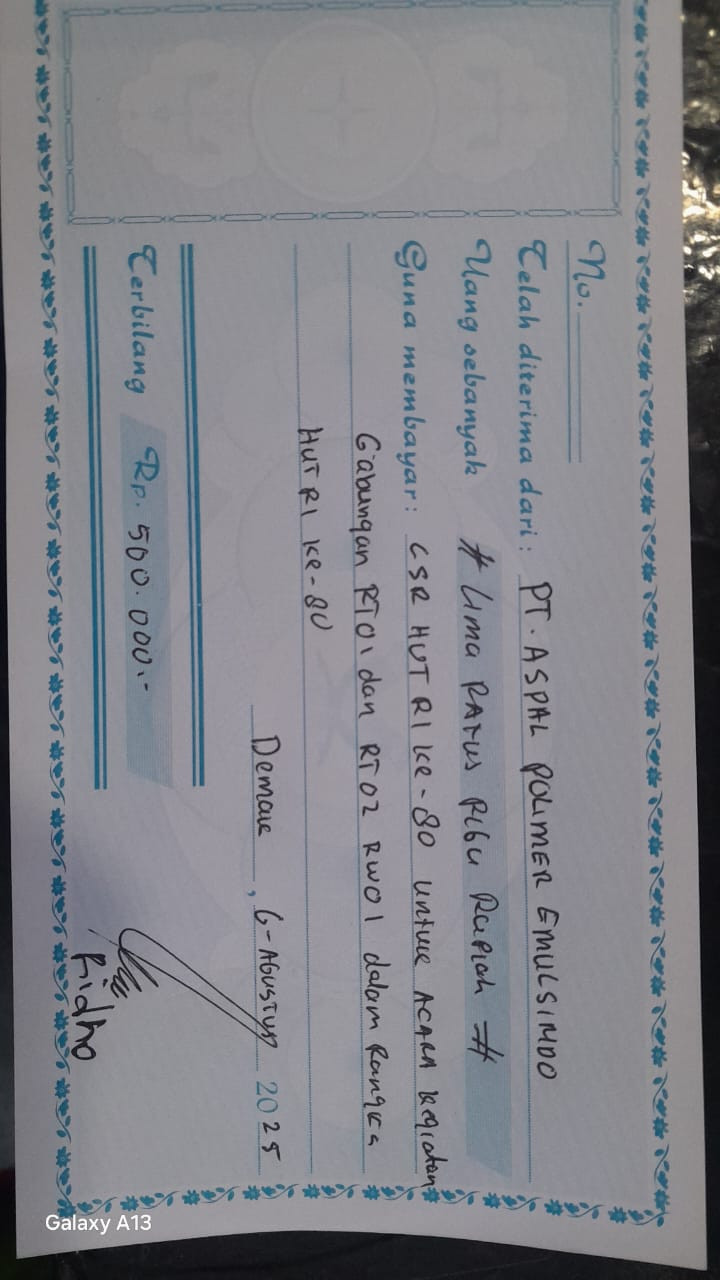 No.
Telah diterima dari: PT. ASPAL POLIMER EMULSINDO
Uang sebanyak # Lima RATUS RIBU RUPIAH #
Guna membayar: CSR HUT RI ke-80 UNTUK ACARA kegiatan
Gabungan RT01 dan RT02 RW01 dalam Rangka
HUT RI ke-80
Demak, 6-AGUSTUS 2025
Terbilang Rp. 500.000.-
Ridho
Galaxy A13